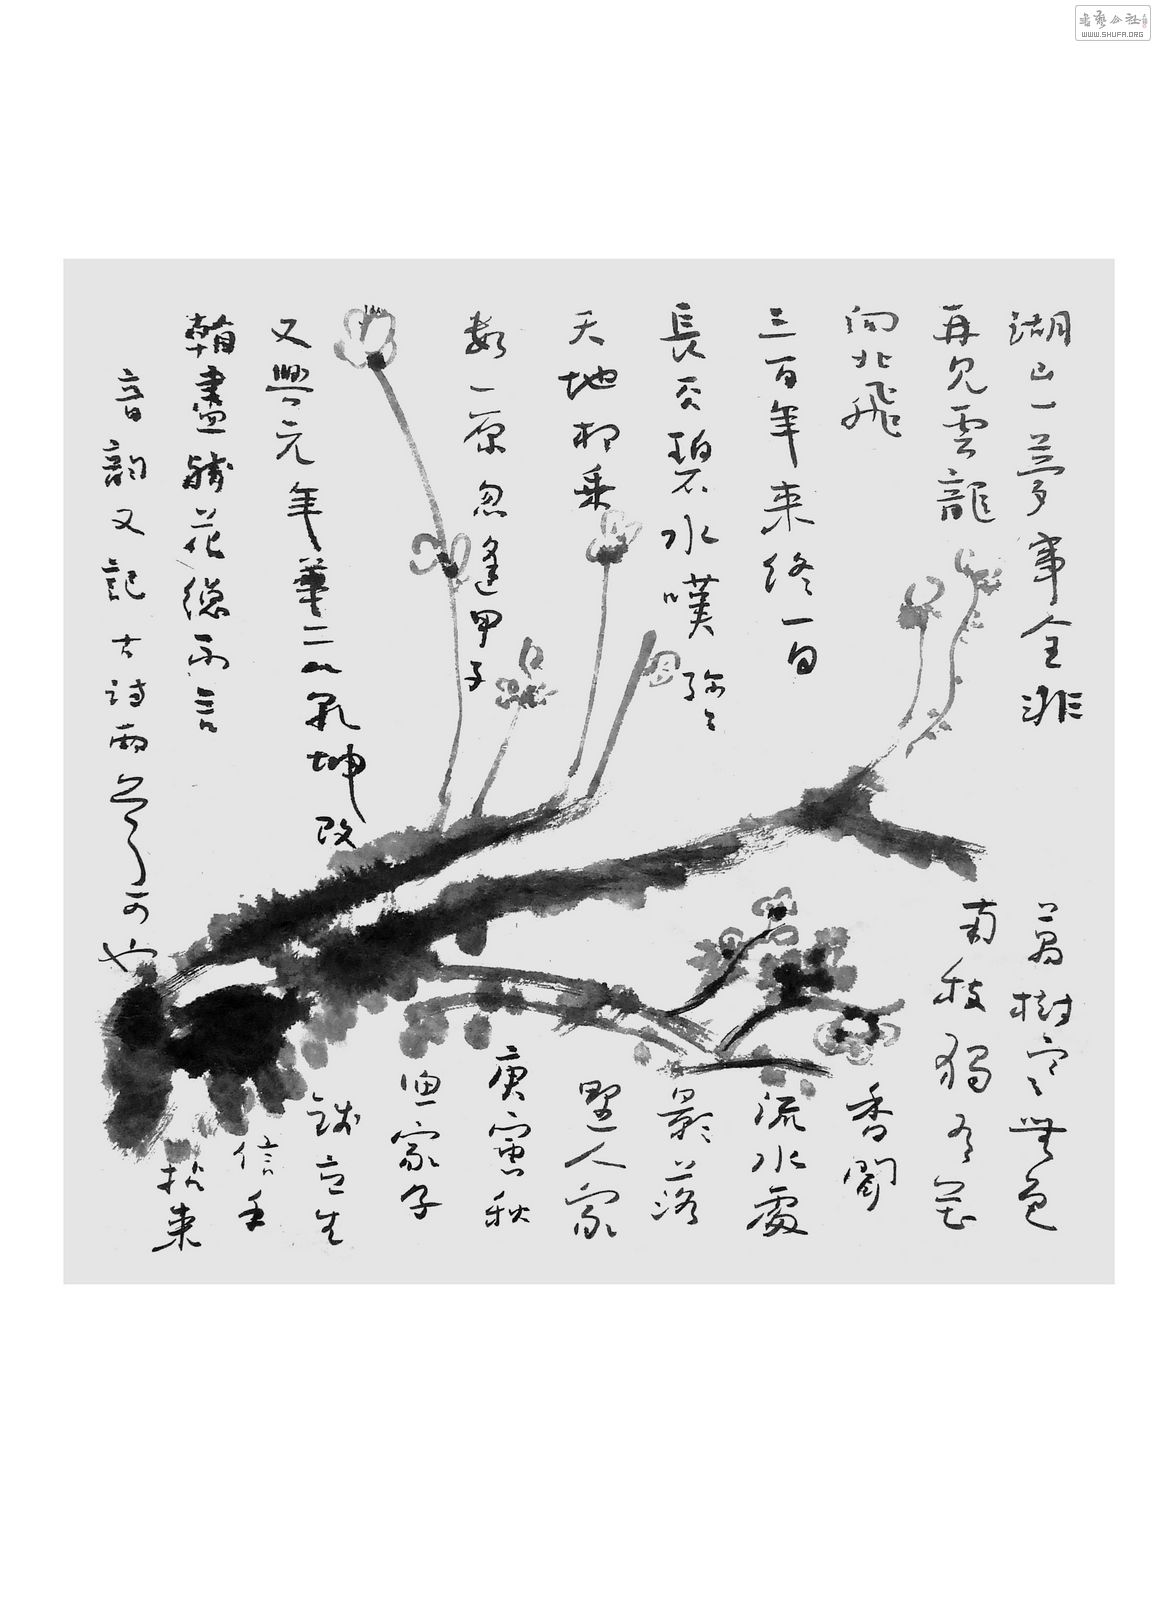 湖山一夢事全非
再見雲龍
向北飛
三百年來終一日
長天碧水嘆彌々
天地相乘
數一原忽逢甲子
又興元年華二八乾坤改
盡殘花總不言
音韵又記古詩兩首可也
萬樹寒無色
南枝獨有花
香聞
流水處
影落
野人家
庚寅秋
漁家子
生
信手
拈來
書藝公社
WWW.SHUFA.ORG